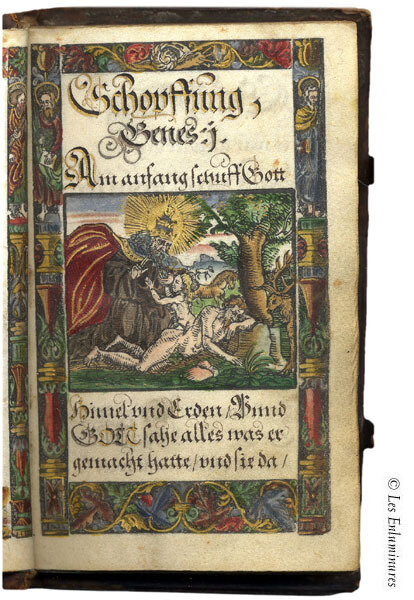 Schopffung,
Genes: j.
Am anfang schuff Gott
Himel vnd Erden / Vnnd
GOTT sahe alles was er
gemacht hatte / vnd sie da /
© Les Enluminures